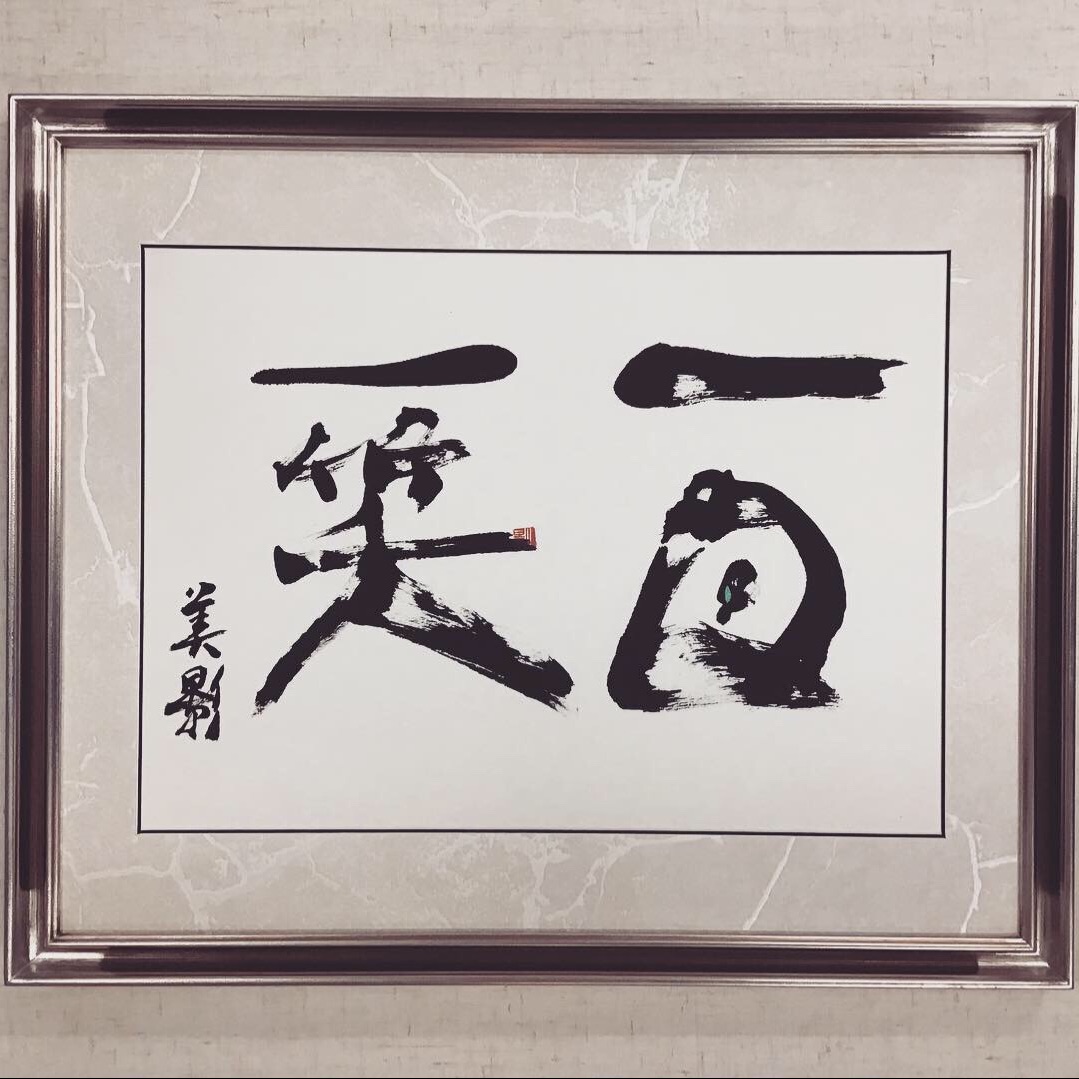 一日
一笑
美影